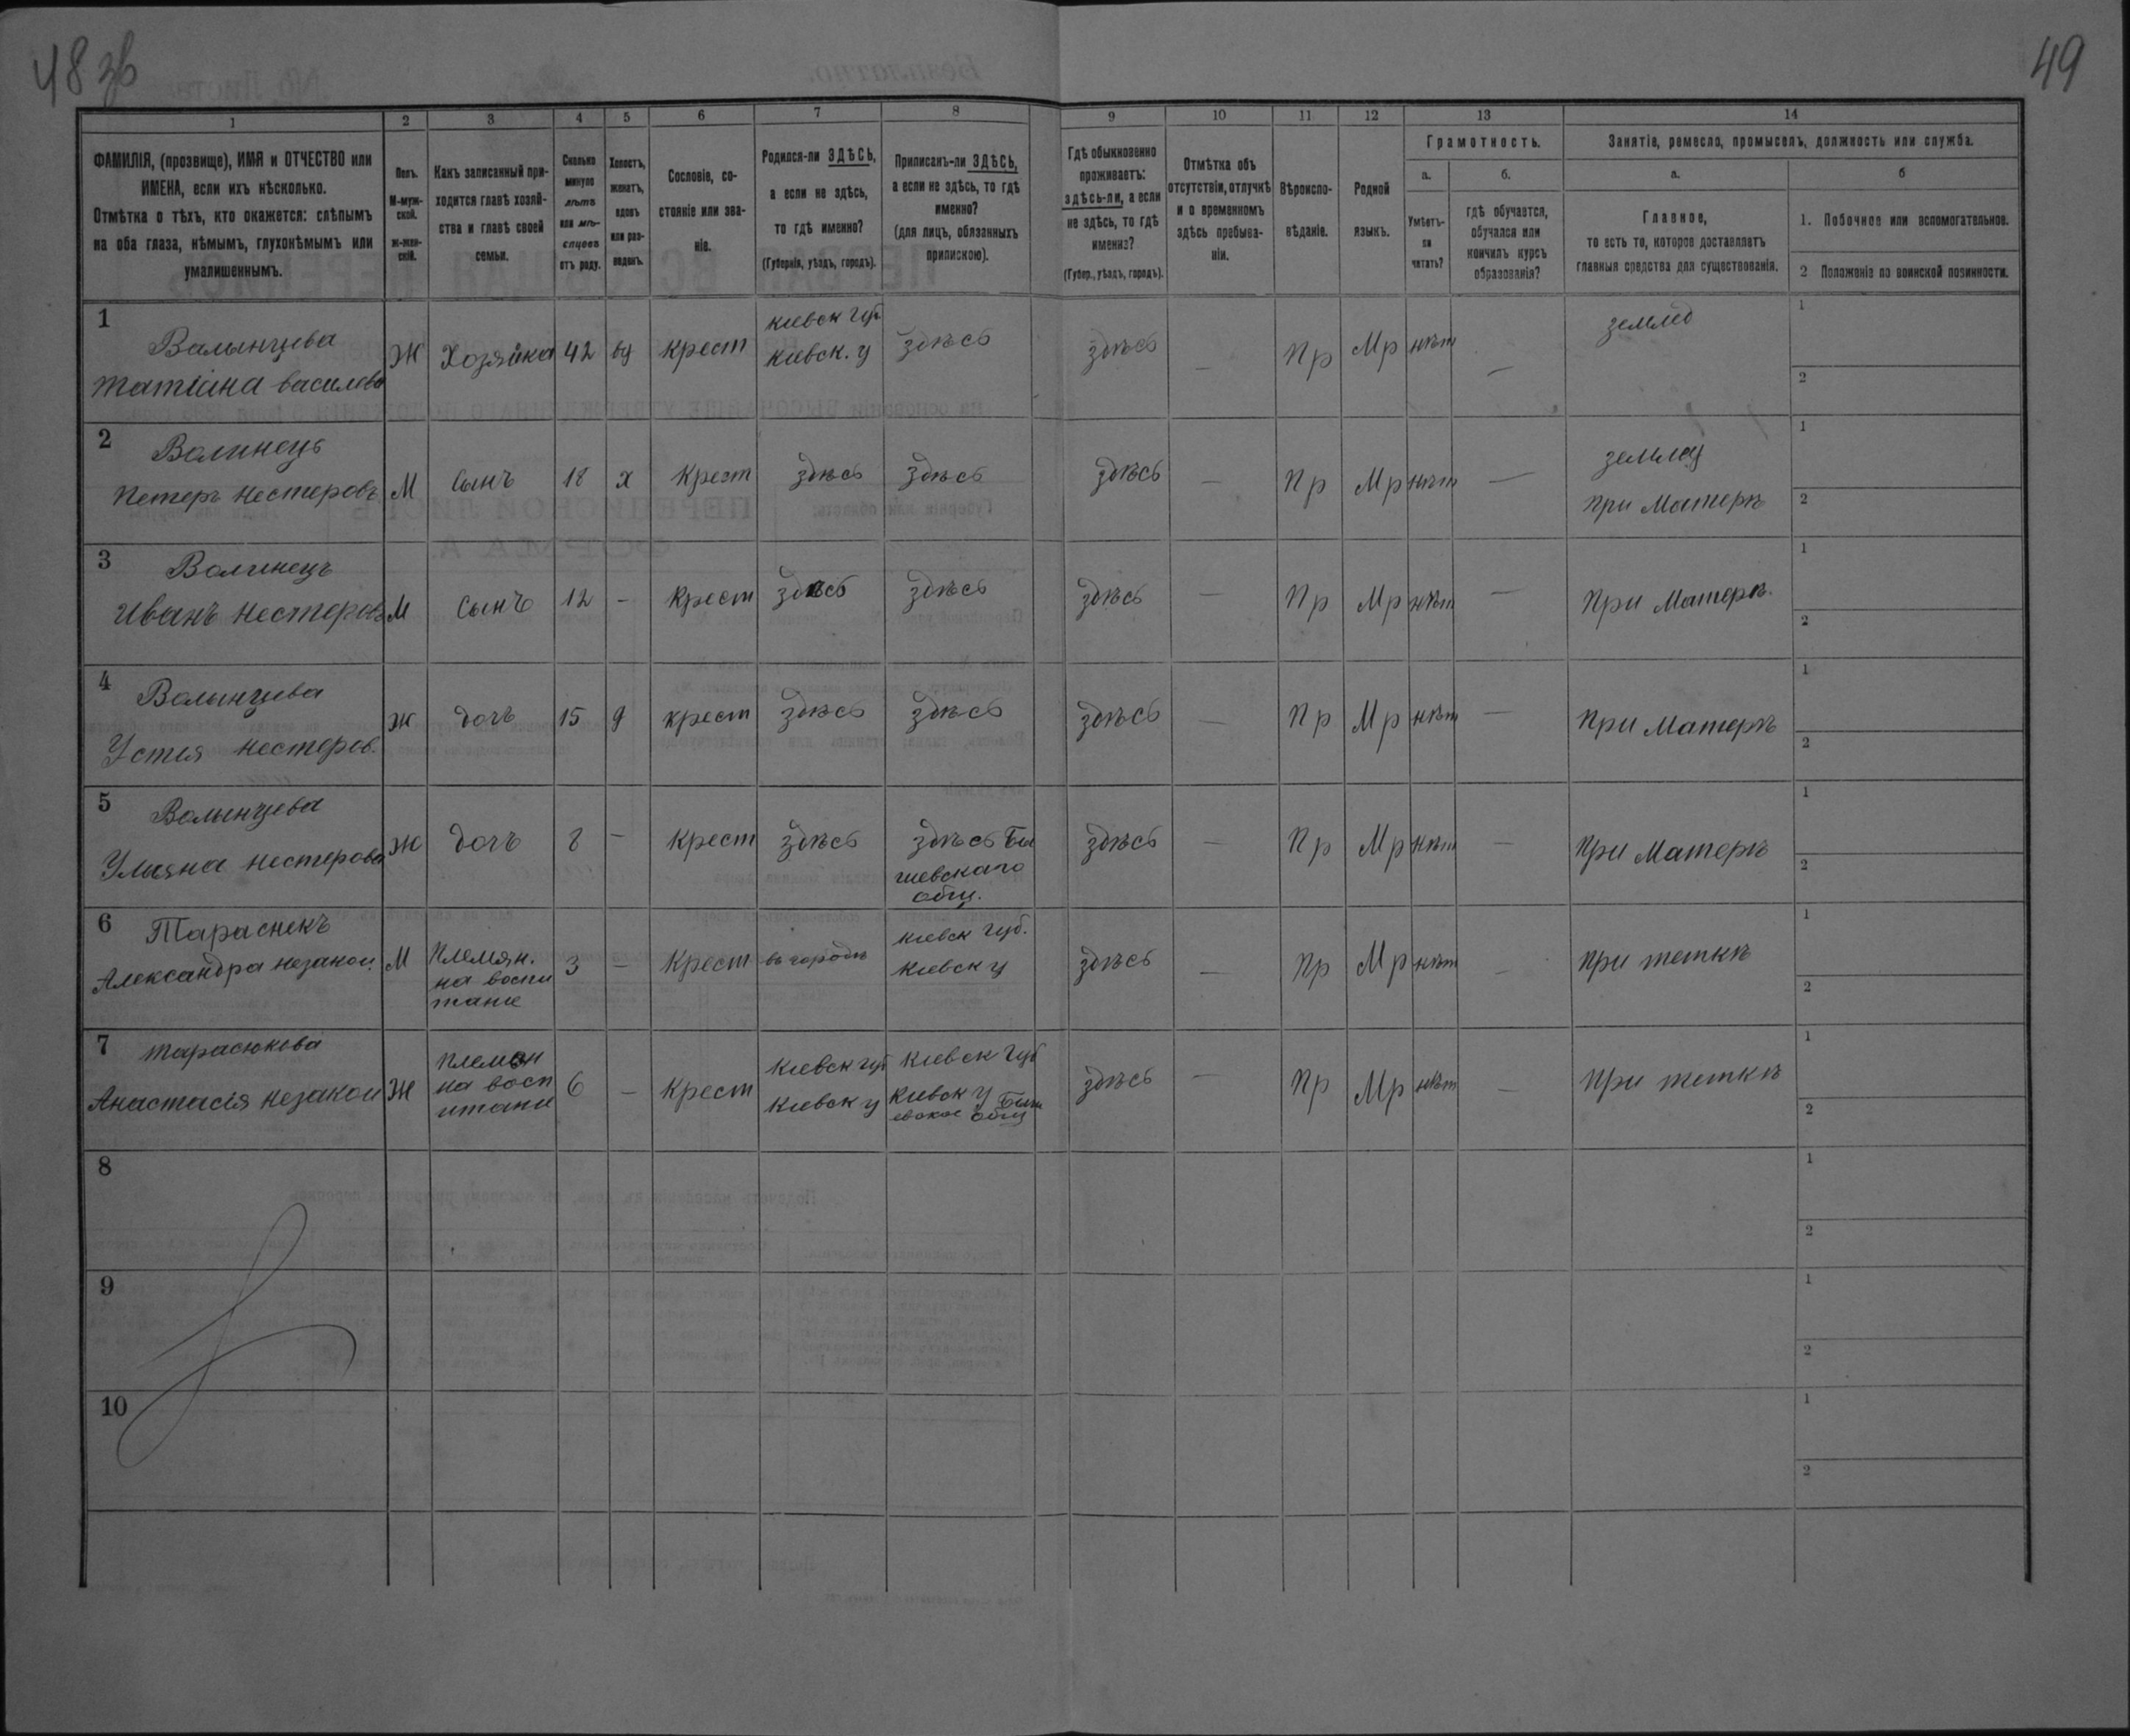 48 зв
49
1 2 3 4 5 6 7 8 9 10 11 12 13 14
ФАМИЛІЯ, (прозвище), ИМЯ и ОТЧЕСТВО или
ИМЕНА, если ихъ нѣсколько.
Отмѣтка о тѣхъ, кто окажется: слѣпымъ
на оба глаза, нѣмымъ, глухонѣмымъ или
умалишеннымъ.
Полъ.
М-муж-
ской.
ж-жен-
скій.
Какъ записанный при-
ходится главѣ хозяй-
ства и главѣ своей
семьи.
Сколько
минуло
лѣтъ
или мѣ-
сяцевъ
отъ роду.
Холостъ,
женатъ,
вдовъ
или раз-
веденъ.
Сословіе, со-
стояніе или зва-
ніе.
Родился-ли ЗДѢСЬ,
а если не здѣсь,
то гдѣ именно?
(Губернія, уѣздъ, городъ).
Приписанъ-ли ЗДѢСЬ,
а если не здѣсь, то гдѣ
именно?
(для лицъ, обязанныхъ
припискою).
Гдѣ обыкновенно
проживаетъ:
здѣсь-ли, а если
не здѣсь, то гдѣ
именно?
(Губер., уѣздъ, городъ).
Отмѣтка объ
отсутствіи, отлучкѣ
и о временномъ
здѣсь пребыва-
ніи.
Вѣроиспо-
вѣданіе.
Родной
языкъ.
Грамотность.
а.
Умѣетъ-
ли
читать?
б.
гдѣ обучается,
обучался или
кончилъ курсъ
образованія?
Занятіе, ремесло, промыселъ, должность или служба.
а.
Главное,
то есть то, которое доставляетъ
главныя средства для существованія.
б
1. Побочное или вспомогательное.
2 Положеніе по воинской повинности.
1
Валынцива
Татіана васильева
Ж Хозяйка 42 ву крест
кіевск губ
кіевск. у
здѣсь здѣсь — Пр Мр нѣт —
землед
1
2
2
Волинець
Петеръ нестеровъ
М Сынъ 18 х Крест здѣсь здѣсь здѣсь — Пр Мр нѣт —
землед
при Матерѣ
1
2
3
Волинецъ
Иванъ нестеровъ
М Сынъ 12 - Крест здѣсь здѣсь здѣсь — Пр Мр нѣт —
При Матерѣ.
1
2
4
Волынцива
Устия нестеров.
Ж дочь 15 д крест здѣсь здѣсь здѣсь — Пр Мр нѣт —
при Матерѣ
1
2
5
Волынцева
Улияна нестерова
Ж дочь 8 — Крест здѣсь
здѣсь Бы
шевскаго
общ.
здѣсь — Пр Мр нѣт —
при Матерѣ
1
2
6
Александра незакон.
М
Племян.
на воспи
тание
3 — Крест въ городѣ
кіевск губ.
Кіевск у
здѣсь — Пр Мр нѣт -
при теткѣ
1
2
7
тарасюкова
Анастасія незакон
Ж
племян
на восп
итание
6 — Крест
Кіевск губ
Кіевск у
Кіевск губ
Кіевск у Быш
евское общ
здѣсь — Пр Мр нѣт —
при теткѣ
1
2
8
1
2
9
1
2
10
1
2